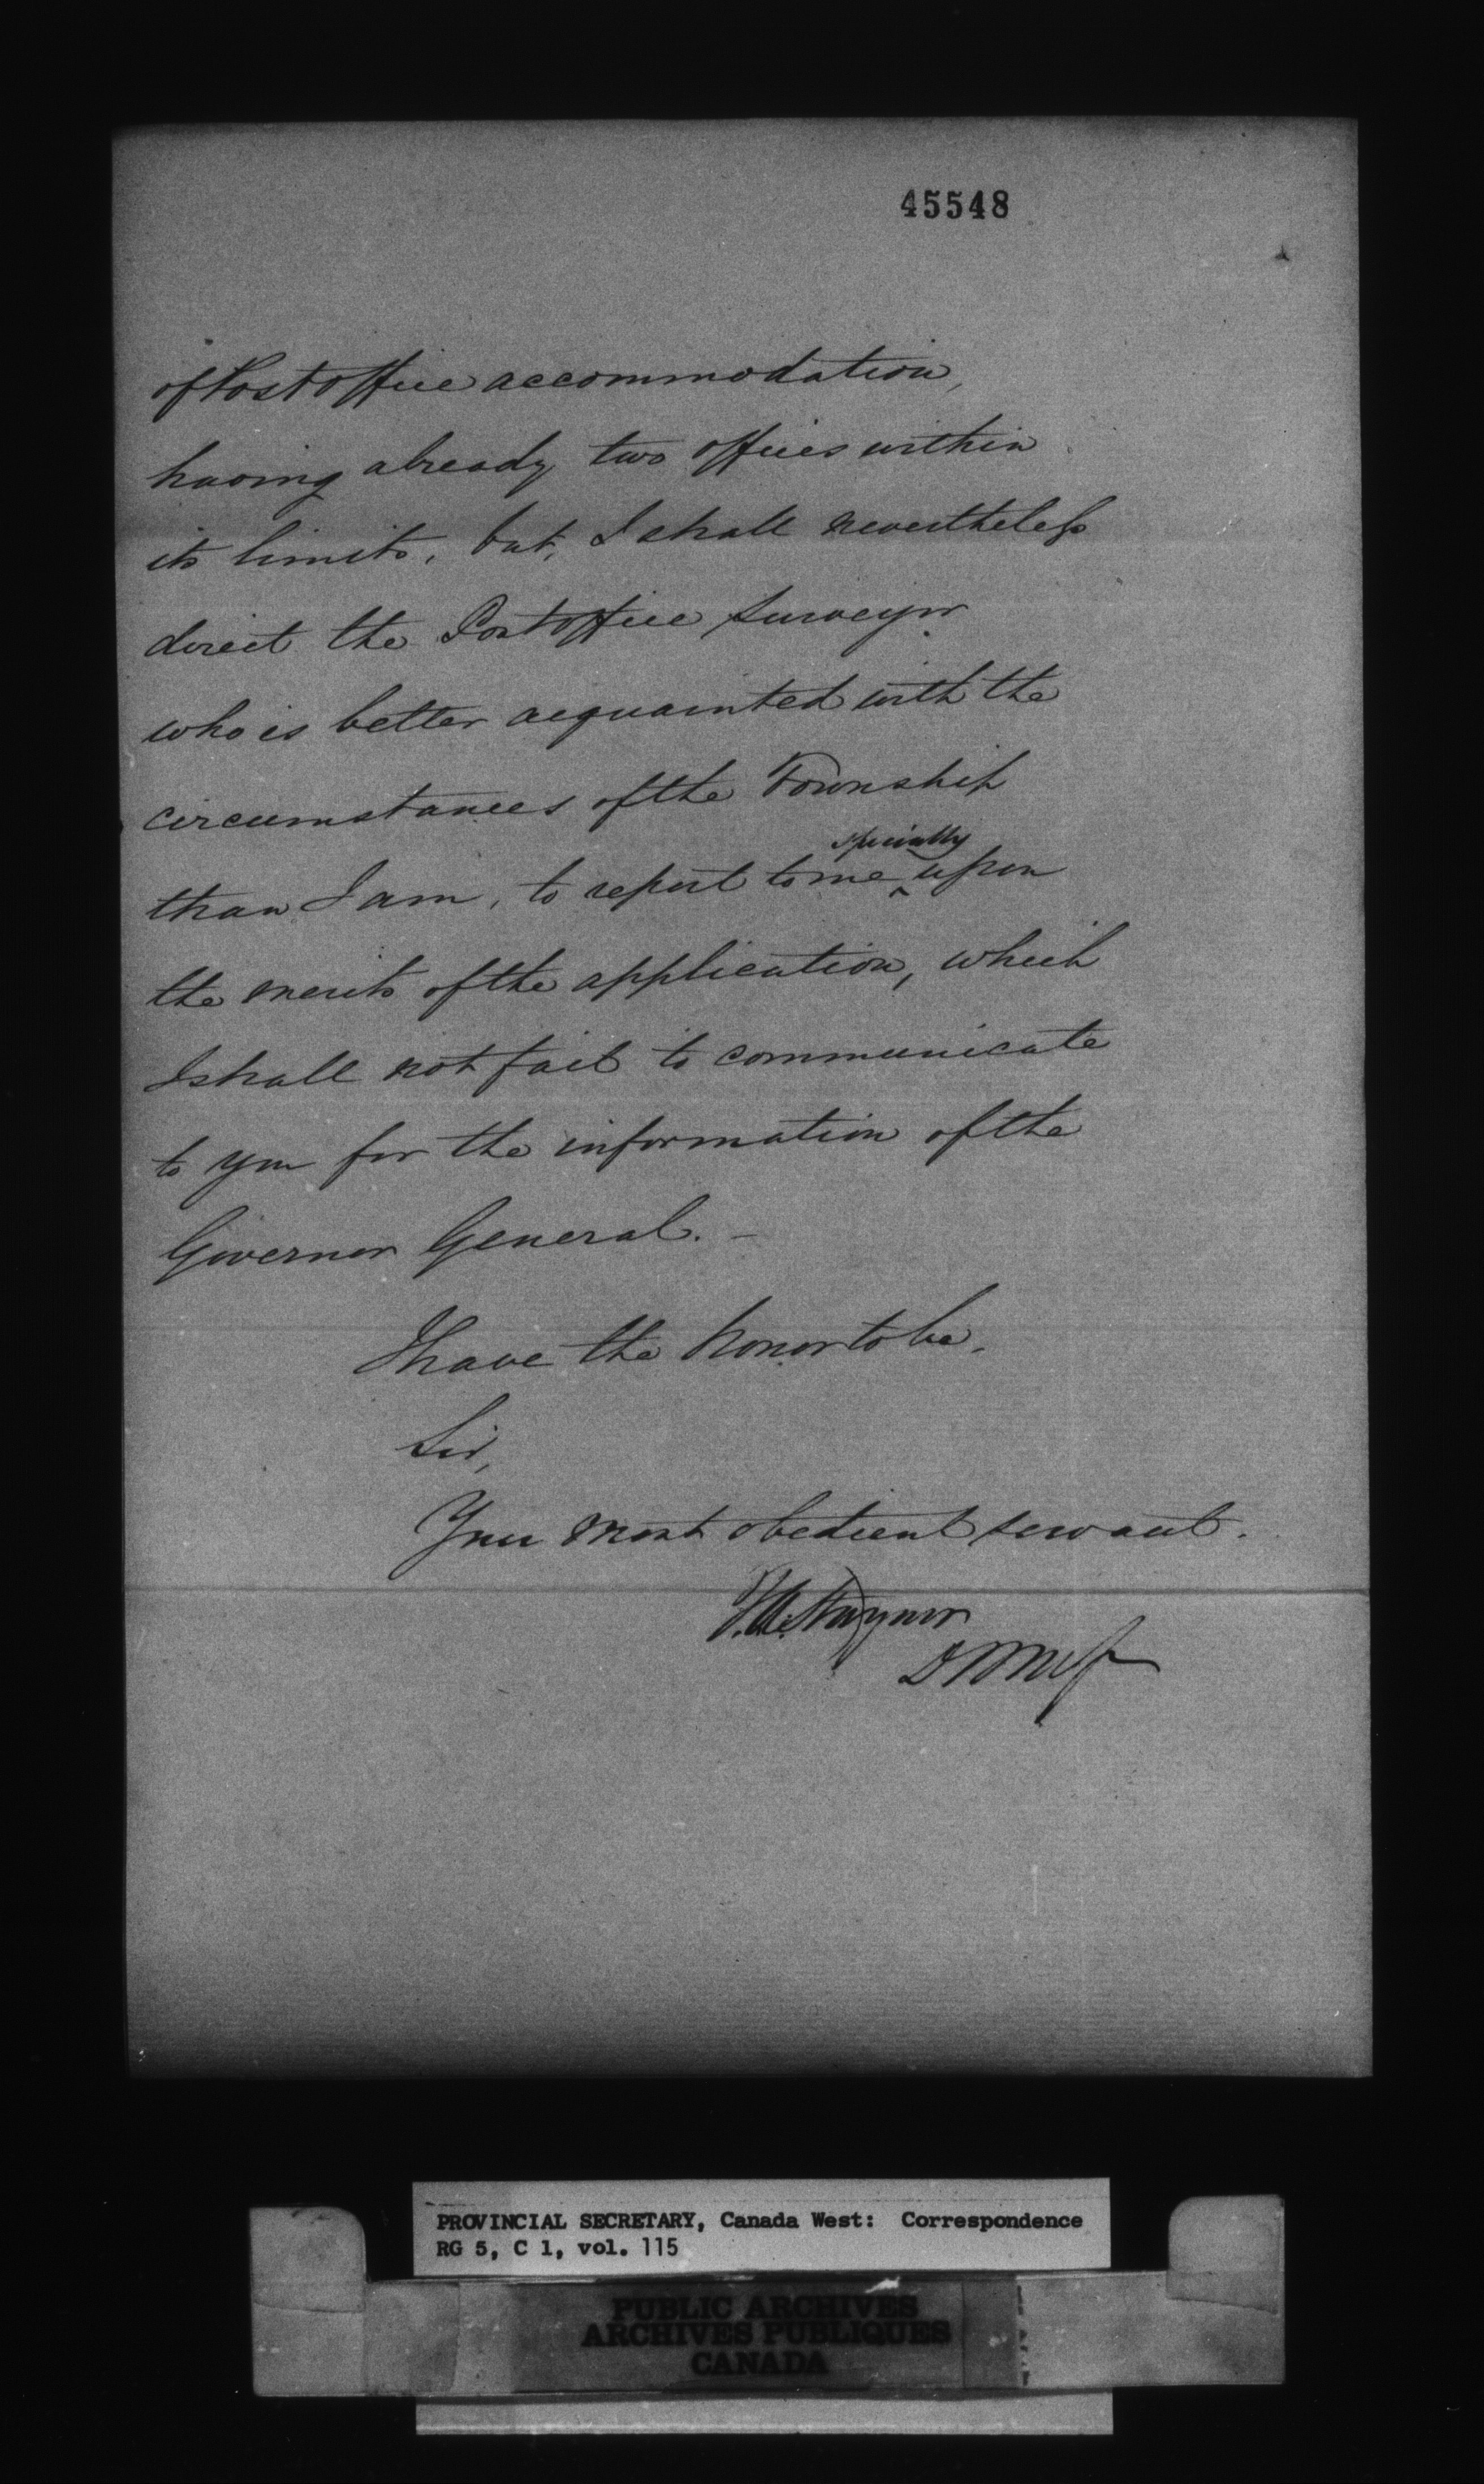 45548
of Post office accommodation,
having already two offices within
its limits, but, I shall nevertheless
direct the Post office Surveyor
who is better acquainted with the
circumstances of the Township
specially
than I am, to report to me ^ upon
the merits of the application, which
I shall not fail to communicate
to you for the information of the
Governor General. -
I have the honor to be,
Sir,
Your most obedient servant.
T.A. Stayner
D P M G
PROVINCIAL SECRETARY, Canada West: Correspondence
RG 5, C 1, vol. 115
PUBLIC ARCHIVES
ARCHIVES PUBLIQUES
CANADA